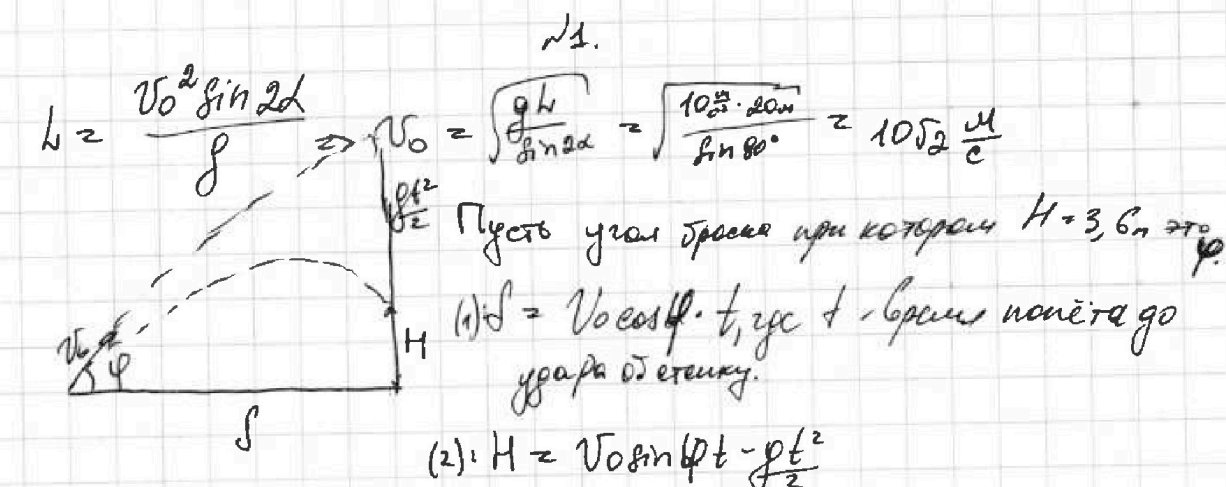 №1.
L = V₀² sin 2α / g => V₀ = √(gL / sin 2α) = √(10 м/с² · 20м / sin 90°) = 10√2 м/с
gt²/2
Пусть угол броска при котором H = 3,6м это φ.
(1) S = V₀ cos φ · t, где t - время полёта до
удара об стенку.
V₀ α
φ
H
S
(2): H = V₀ sin φ t - gt²/2